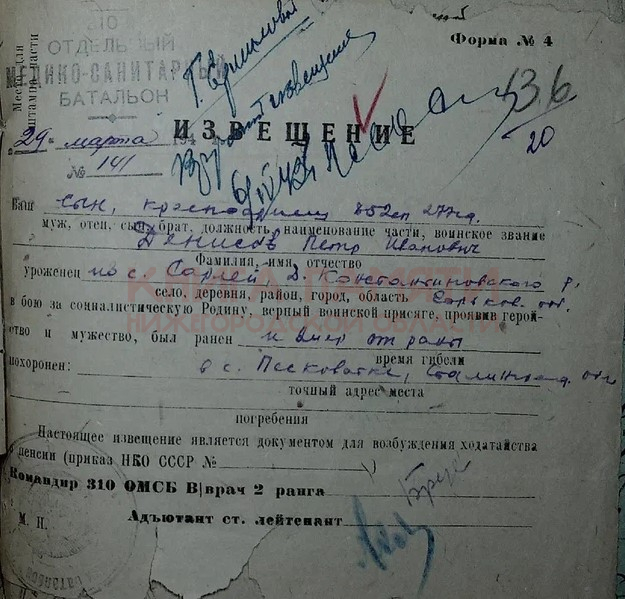 310
ОТДЕЛЬНЫЙ
МЕДИКО-САНИТАРНЫЙ
БАТАЛЬОН
Место для
штампа части
Форма № 4
136
20
29 марта 194
ИЗВЕЩЕНИЕ
№ 141
Ваш сын, красноармеец 852сп 277сд.
муж, отец, сын, брат, должность, наименование части, воинское звание
Денисов Петр Иванович
Фамилия, имя, отчество
уроженец
село, деревня, район, город, область
КНИГА ПАМЯТИ
НИЖЕГОРОДСКОЙ ОБЛАСТИ
в бою за социалистическую Родину, верный воинской присяге, проявив герой-
ство и мужество, был ранен и умер от раны
время гибели
похоронен: в с. Песковатке, Сталинград. обл
точный адрес места
погребения
Настоящее извещение является документом для возбуждения ходатайства
о пенсии (приказ НКО СССР № )
Командир 310 ОМСБ В/врач 2 ранга
Адъютант ст. лейтенант
М. П.